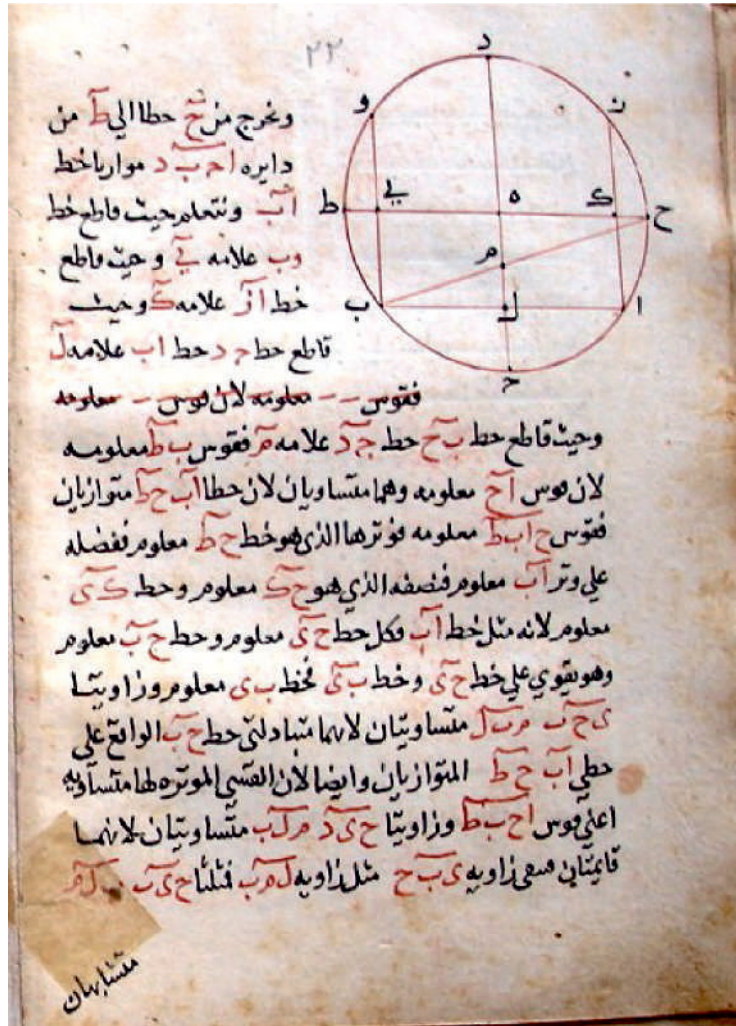 ٢٢
د
و
ن
ط
ي
ه
ك
ح
م
ب
ل
ا
ج
ونخرج من ح خطا الي ط من
دايره ا ج ب د موازيا خط
اب ونتعلم حيث قاطع خط
وب علامه ي وحيث قاطع
خط از علامه ك وحيث
قاطع خط ج د خط اب علامه ل
فقوس معلومه لان قوس معلومه
وحيث قاطع خط ب ح خط ج د علامه م فقوس ب ط معلومه
لان قوس اح معلومه وهما متساويان لان خطا اب ح ط متوازيان
فقوس ح اب ط معلومه فوترها الذي هو خط ح ط معلوم ففضله
علي وتر اب معلوم فنصفه الذي هو ح ك معلوم وخط ك ي
معلوم لانه مثل خط اب فكل خط ح ي معلوم وخط ح ب معلوم
وهو يقوي علي خط ح ي وخط ب ي فخط ب ي معلوم وزاويتا
ي ح ب م ب ل متساويتان لانهما متبادلتي خط ح ب الواقع علي
خطي اب ح ط المتوازيان وايضا لان القسي الموتره لها متساويه
اعني قوس اح ب ط وزاويتا ح ي د م ل ب متساويتان لانهما
قايمتان فبقي زاويه ي ب ح مثل زاويه ل م ب فمثلثا ح ي ب ب ل م
متشابهان